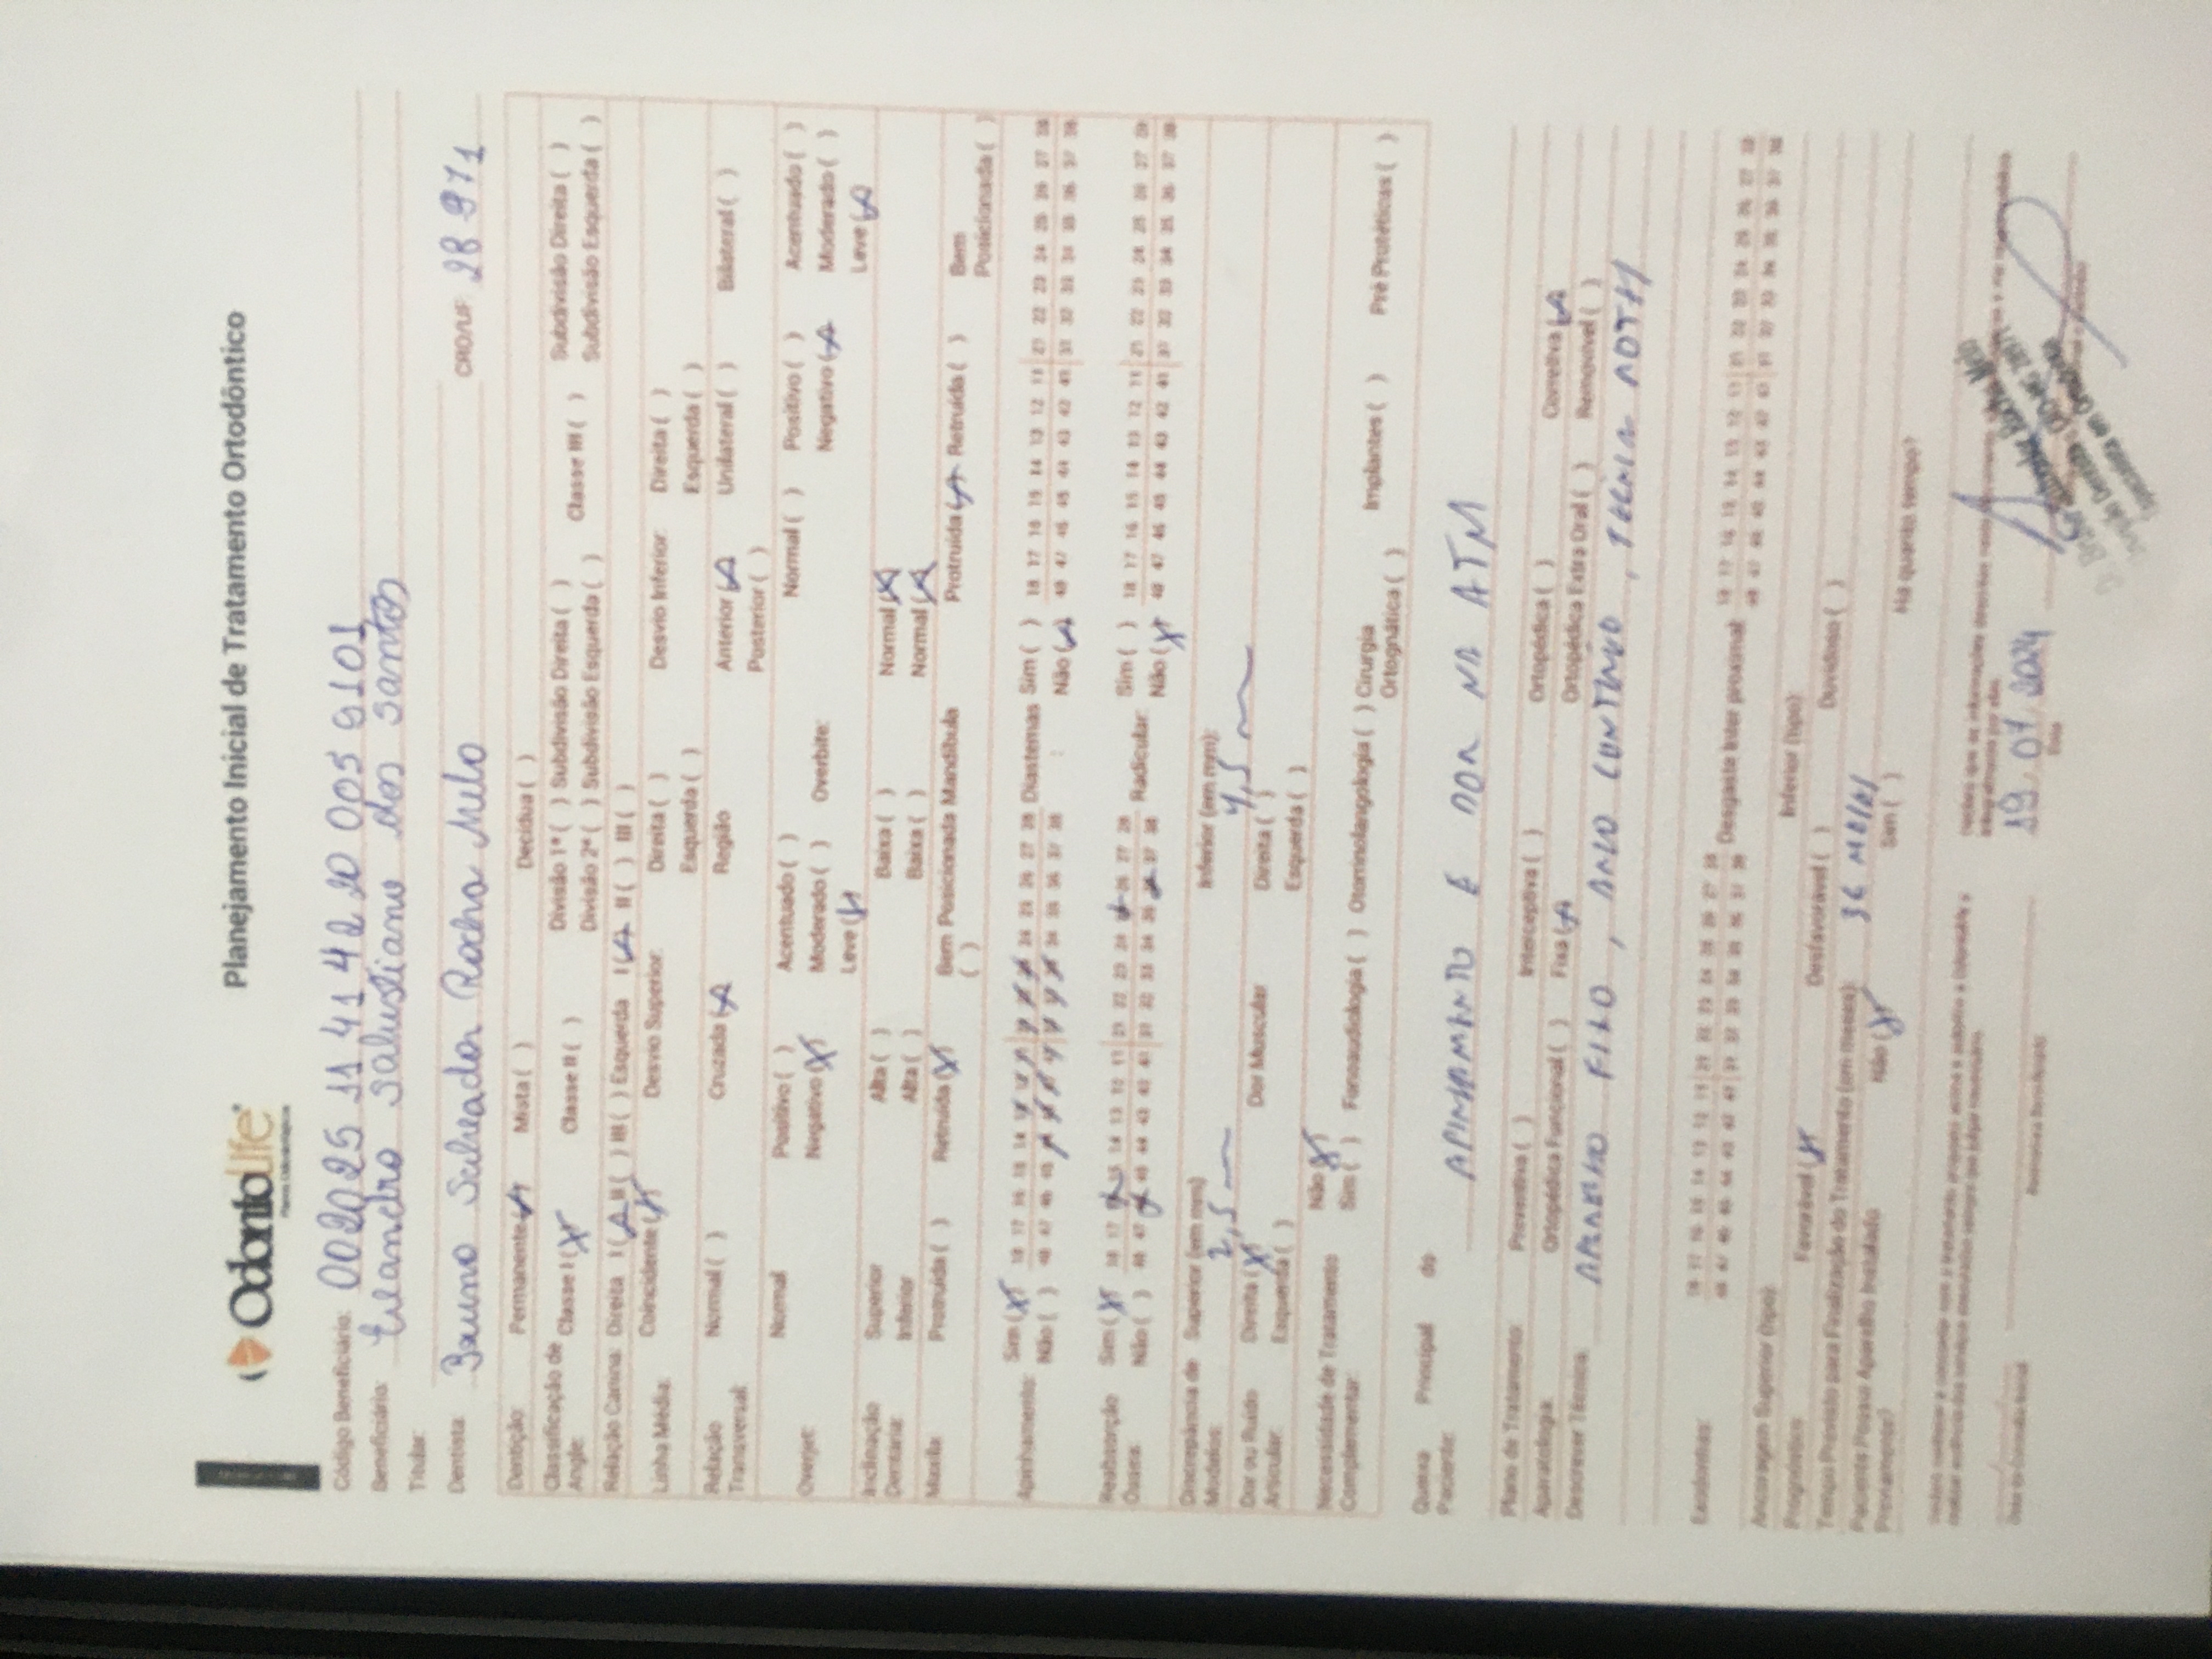 OdontoLife
Planos Odontológicos
Planejamento Inicial de Tratamento Ortodôntico
Código Beneficiário: 002025 11 41 42 20 005 9101
Beneficiário: Eleandro Salustiano dos Santos
Titular:
Dentista: Bruno Salheador Rocha Melo CRO/UF: 28 971
Dentição: Permanente (X) Mista ( ) Decídua ( )
Classificação de Angle: Classe I (X) Classe II ( ) Divisão 1ª ( ) Subdivisão Direita ( ) Classe III ( ) Subdivisão Direita ( )
Divisão 2ª ( ) Subdivisão Esquerda ( ) Subdivisão Esquerda ( )
Relação Canina: Direita I (X) II ( ) III ( ) Esquerda I (X) II ( ) III ( )
Linha Média: Coincidente (X) Desvio Superior: Direita ( ) Desvio Inferior: Direita ( )
Esquerda ( ) Esquerda ( )
Relação Transversal: Normal ( ) Cruzada (X) Região Anterior (X) Unilateral ( ) Bilateral ( )
Posterior ( )
Overjet: Normal Positivo ( ) Acentuado ( ) Overbite: Normal ( ) Positivo ( ) Acentuado ( )
Negativo (X) Moderado ( ) Negativo (X) Moderado ( )
Leve (X) Leve (X)
Inclinação Dentária: Superior Alta ( ) Baixa ( ) Normal (X)
Inferior Alta ( ) Baixa ( ) Normal (X)
Maxila: Protruída ( ) Retruída (X) Bem Posicionada ( ) Mandíbula Protruída (X) Retruída ( ) Bem Posicionada ( )
Apinhamento: Sim (X) 18 17 16 15 14 24 25 26 27 28 Diastemas Sim ( ) 18 17 16 15 14 13 12 11 21 22 23 24 25 26 27 28
Não ( ) 48 47 46 45 35 36 37 38 Não (X) 48 47 46 45 44 43 42 41 31 32 33 34 35 36 37 38
Reabsorção Óssea: Sim (X) 18 17 15 14 13 12 11 21 22 23 24 26 27 28 Radicular: Sim ( ) 18 17 16 15 14 13 12 11 21 22 23 24 25 26 27 28
Não ( ) 48 47 45 44 43 42 41 31 32 33 34 35 37 38 Não (X) 48 47 46 45 44 43 42 41 31 32 33 34 35 36 37 38
Discrepância de Modelos: Superior (em mm): 2,5 Inferior (em mm): 4,5
Dor ou Ruído Articular: Direita (X) Dor Muscular Direita ( )
Esquerda ( ) Esquerda ( )
Necessidade de Tratamento Complementar: Não (X)
Sim ( ) Fonoaudiologia ( ) Otorrinolaringologia ( ) Cirurgia Ortognática ( ) Implantes ( ) Pré Protéticas ( )
Queixa Principal do Paciente: APINHAMENTO E DOR NA ATM
Plano de Tratamento: Preventiva ( ) Interceptiva ( ) Ortopédica ( ) Corretiva (X)
Aparatologia: Ortopédica Funcional ( ) Fixa (X) Ortopédica Extra Oral ( ) Removível ( )
Descrever Técnica: APARELHO FIXO, ARCO CONTINUO, TECNICA ROTH
Exodontias: 18 17 16 15 14 13 12 11 21 22 23 24 25 26 27 28 Desgaste Inter proximal: 18 17 16 15 14 13 12 11 21 22 23 24 25 26 27 28
48 47 46 45 44 43 42 41 31 32 33 34 35 36 37 38 48 47 46 45 44 43 42 41 31 32 33 34 35 36 37 38
Ancoragem Superior (tipo) Inferior (tipo)
Prognóstico Favorável (X) Desfavorável ( ) Duvidoso ( )
Tempo Previsto para Finalização do Tratamento (em meses): 36 MESES
Paciente Possui Aparelho Instalado Previamente? Não (X) Sim ( ) Há quanto tempo?
19.07.2024
Data